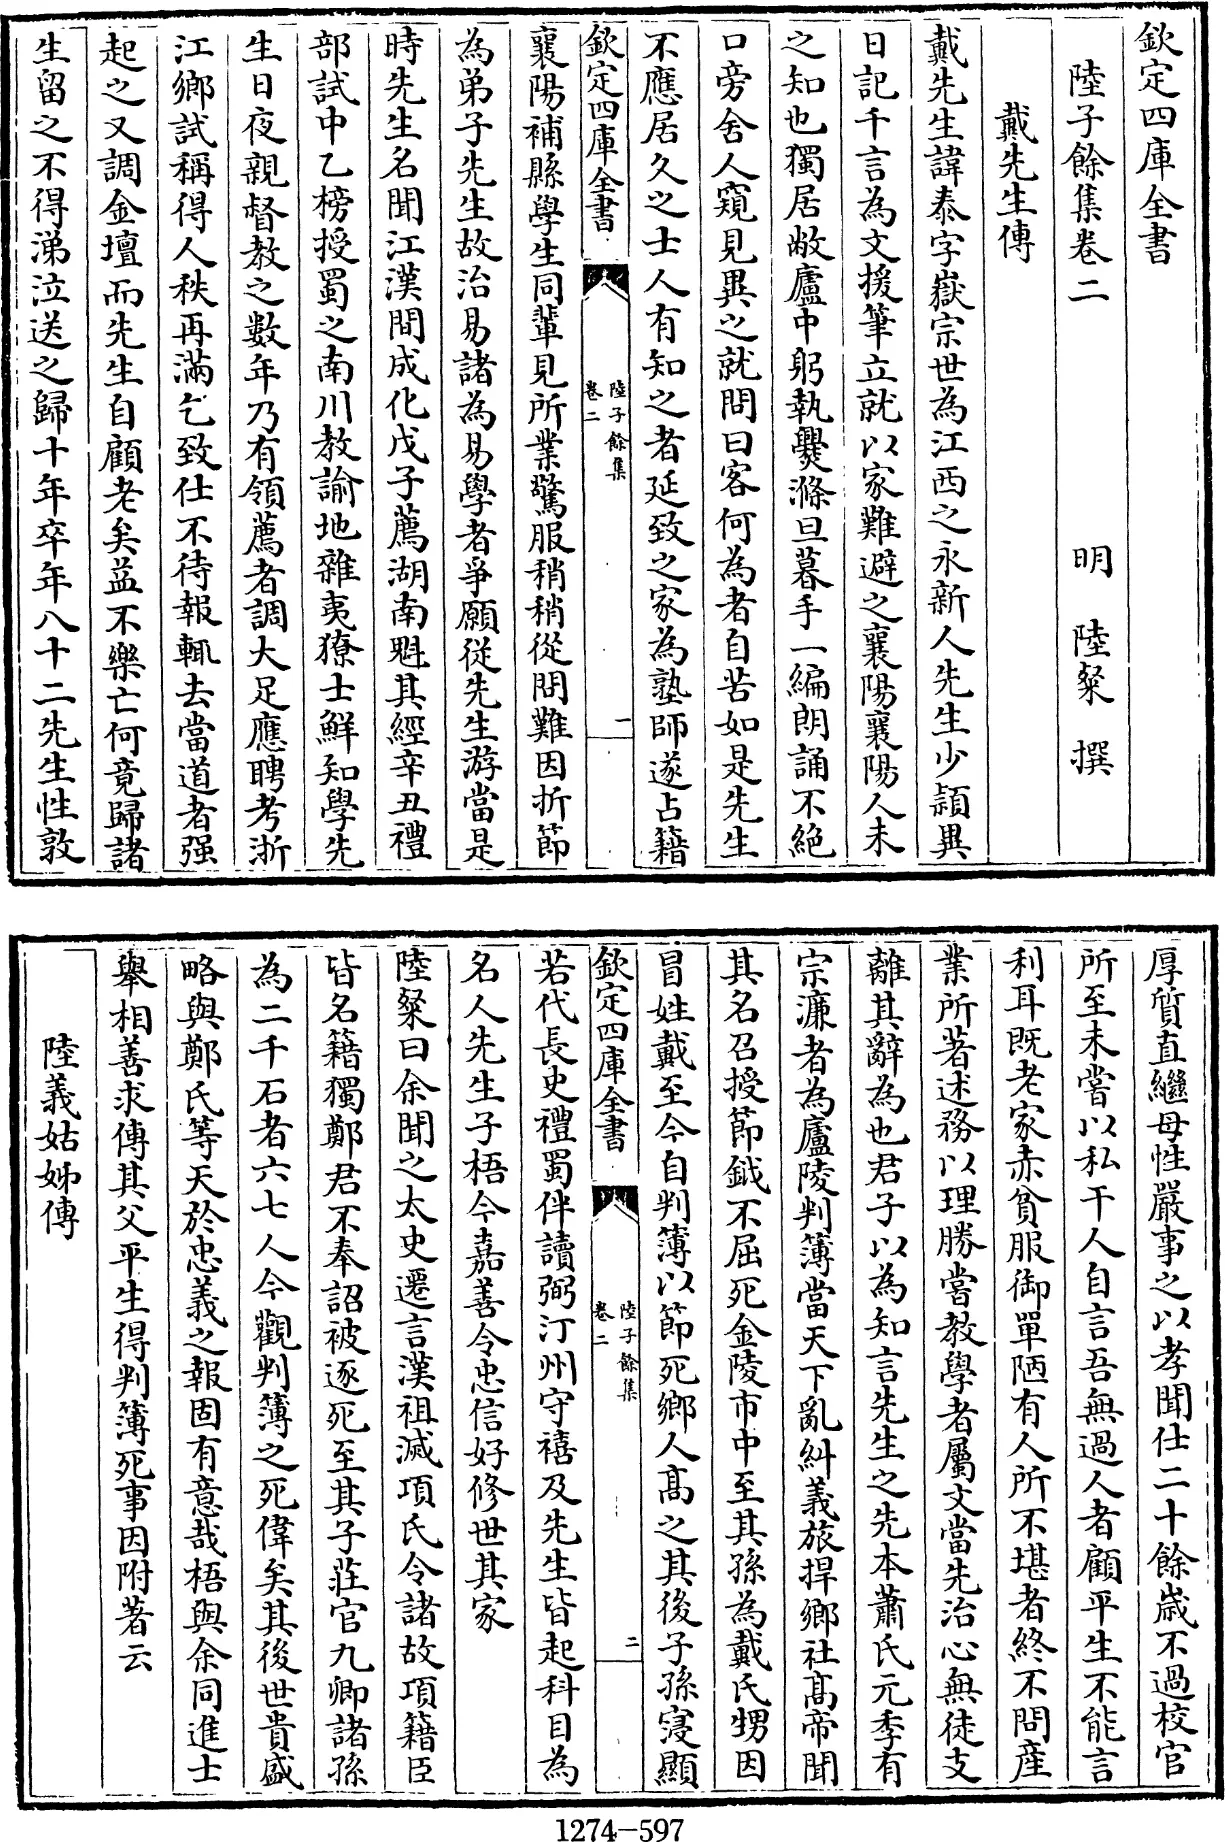 欽定四庫全書
陸子餘集卷二
明 陸粲 撰
戴先生傳
戴先生諱泰字嶽宗世為江西之永新人先生少頴異
日記千言為文援筆立就以家難避之襄陽襄陽人未
之知也獨居敝廬中躬執爨滌旦暮手一編朗誦不絶
口旁舍人窺見異之就問曰客何為者自苦如是先生
不應居久之士人有知之者延致之家為塾師遂占籍
欽定四庫全書
陸子餘集
卷二
一
襄陽補縣學生同輩見所業驚服稍稍從問難因折節
為弟子先生故治易諸為易學者爭願從先生游當是
時先生名聞江漢間成化戊子薦湖南魁其經辛丑禮
部試中乙榜授蜀之南川教諭地雜夷獠士鮮知學先
生日夜親督教之數年乃有領薦者調大足應聘考浙
江鄉試稱得人秩再滿乞致仕不待報輒去當道者强
起之又調金壇而先生自顧老矣益不樂亡何竟歸諸
生留之不得涕泣送之歸十年卒年八十二先生性敦
厚質直繼母性嚴事之以孝聞仕二十餘歲不過校官
所至未嘗以私干人自言吾無過人者顧平生不能言
利耳既老家赤貧服御單陋有人所不堪者終不問産
業所著述務以理勝嘗教學者屬文當先治心無徒支
離其辭為也君子以為知言先生之先本蕭氏元季有
宗濂者為廬陵判簿當天下亂糾義旅捍鄉社髙帝聞
其名召授節鉞不屈死金陵市中至其孫為戴氏甥因
冒姓戴至今自判簿以節死鄉人髙之其後子孫寖顯
欽定四庫全書
陸子餘集
卷二
二
若代長史禮蜀伴讀弼汀州守禧及先生皆起科目為
名人先生子梧今嘉善令忠信好修世其家
陸粲曰余聞之太史遷言漢祖滅項氏令諸故項籍臣
皆名籍獨鄭君不奉詔被逐死至其子莊官九卿諸孫
為二千石者六七人今觀判簿之死偉矣其後世貴盛
略與鄭氏等天於忠義之報固有意哉梧與余同進士
舉相善求傳其父平生得判簿死事因附著云
陸義姑姊傳
1274—597